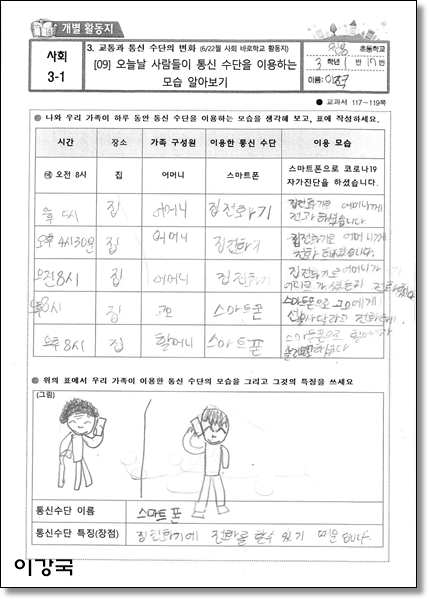 개별 활동지
사회
3-1
3. 교통과 통신 수단의 변화 (6/22월 사회 바로학교 활동지)
[09] 오늘날 사람들이 통신 수단을 이용하는
모습 알아보기
초등학교
3 학년 1 반 17 번
이름:
● 교과서 117~119쪽
● 나와 우리 가족이 하루 동안 통신 수단을 이용하는 모습을 생각해 보고, 표에 작성하세요.
시간 장소 가족 구성원 이용한 통신 수단 이용 모습
예 오전 8시 집 어머니 스마트폰 스마트폰으로 코로나19
자가진단을 하셨습니다.
집 어머니 집전화기 집전화기로 어머니께
전화하셨습니다.
오후 4시30분 집 어머니 집전화기 집전화기로 어머니께
오전 8시 집 어머니 집전화기 집전화기로 어머니가
8시 집 스마트폰 스마트폰으로
오후 8시 집 할머니 스마트폰 스마트폰으로 할머니가
● 위의 표에서 우리 가족이 이용한 통신 수단의 모습을 그리고 그것의 특징을 쓰세요
(그림)
통신수단 이름 스마트폰
통신수단 특징(장점) 집전화기에 전화를 할수 있기 때문입니다.
이강국